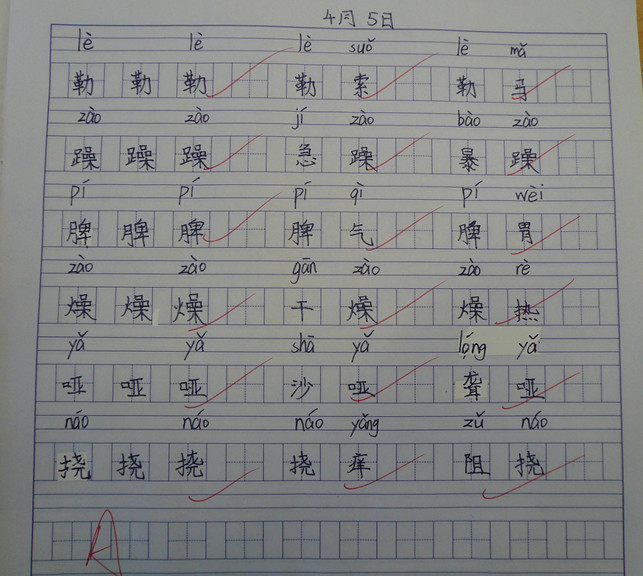 4月5日
lè lè lè suǒ lè mǎ
勒 勒 勒 勒 索 勒 马
zào zào jí zào bào zào
躁 躁 躁 急 躁 暴 躁
pí pí pí qì pí wèi
脾 脾 脾 脾 气 脾 胃
zào zào gān zào zào rè
燥 燥 燥 干 燥 燥 热
yǎ yǎ shā yǎ lóng yǎ
哑 哑 哑 沙 哑 聋 哑
náo náo náo yǎng zǔ náo
挠 挠 挠 挠 痒 阻 挠
A